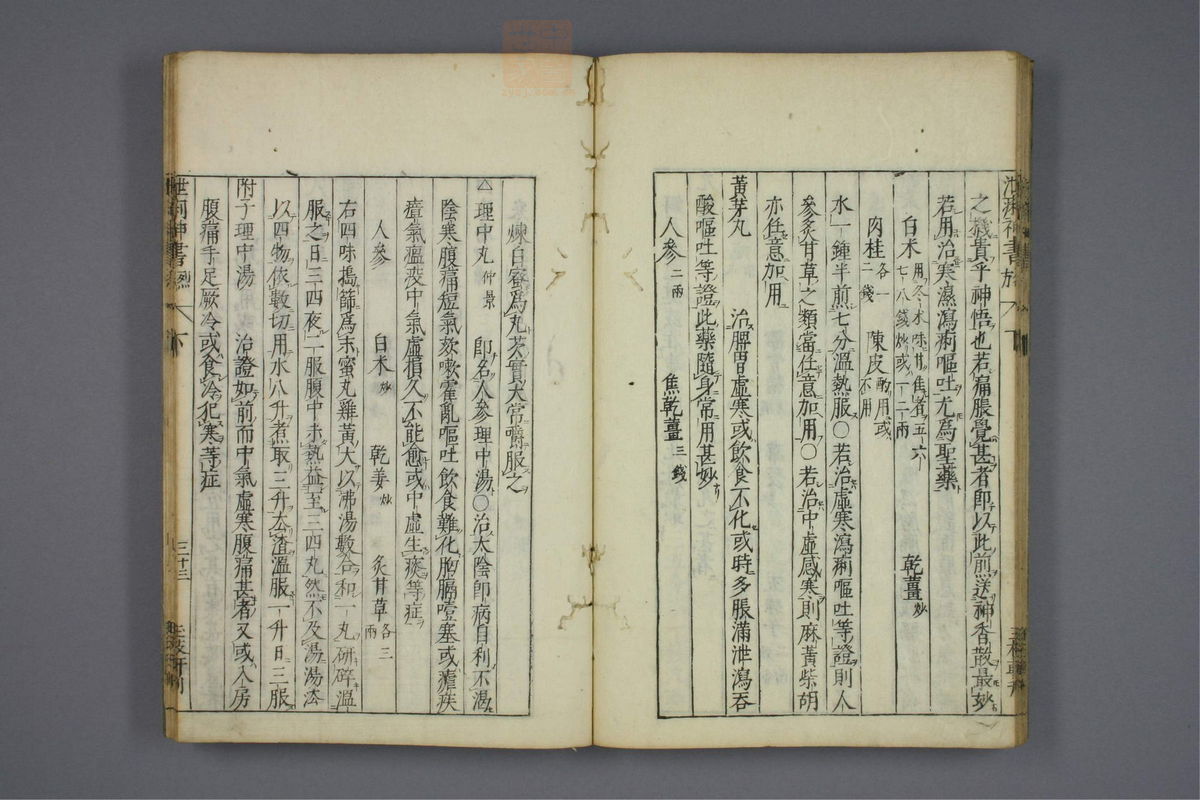 之機貴乎神悟也若痛脹覺甚者即以此煎送神香散最妙
若用治寒濕瀉痢嘔吐尤為聖藥
白术用冬术味甘焦者五六七八錢炒或一二兩 乾薑炒
肉桂各一二錢 陳皮酌用或不用
水一鍾半煎七分溫熱服〇若治虛寒瀉痢嘔吐等證則人
參炙甘草之類當任意加用〇若治中虛感寒則麻黃柴胡
亦任意加用
黃芽丸 治脾胃虛寒或飲食不化或時多脹滿泄瀉吞
酸嘔吐等證此藥隨身常用甚妙
人參二兩 焦乾薑三錢
煉白蜜為丸芡實大常嚼服之
△理中丸仲景 即名人參理中湯〇治太陰即病自利不渴
陰寒腹痛短氣欬嗽霍亂嘔吐飲食難化胸膈噎塞或瘧疾
瘴氣瘟疫中氣虛損久不能愈或中虛生痰等症
人參 白术炒 乾姜炒 炙甘草各三兩
右四味搗篩為末蜜丸雞黃大以沸湯數合和一丸研碎溫
服之日三四夜二服腹中未熱益至三四丸然不及湯湯法
以四物依數切用水八升煮取三升去渣溫服一升日三服
附子理中湯 治證如前而中氣虛寒腹痛甚者又或入房
腹痛手足厥冷或食冷犯寒等症
三十三